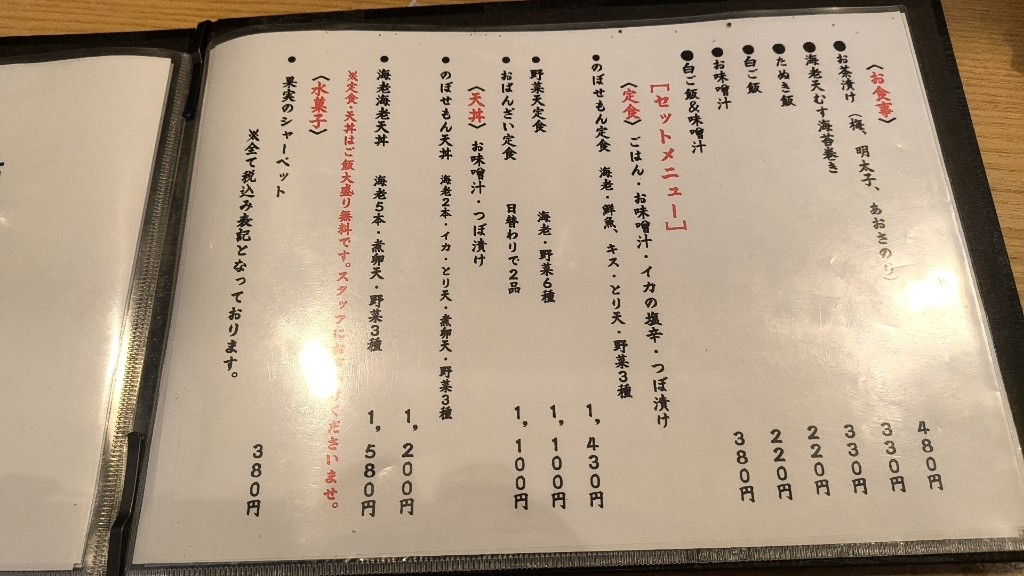 〈お食事〉
●お茶漬け（梅、明太子、あおさのり） 480円
●海老天むす海苔巻き 330円
●たぬき飯 330円
●白ご飯 220円
●お味噌汁 220円
●白ご飯&味噌汁 380円
[セットメニュー]
〈定食〉 ごはん・お味噌汁・イカの塩辛・つぼ漬け
●のぼせもん定食 海老・鮮魚、キス・とり天・野菜3種 1,430円
●野菜天定食 海老・野菜6種 1,100円
●おばんざい定食 日替わりで2品 1,100円
〈天丼〉 お味噌汁・つぼ漬け
●のぼせもん天丼 海老2本・イカ・とり天・煮卵天・野菜3種 1,200円
●海老海老天丼 海老5本・煮卵天・野菜3種 1,580円
※定食・天丼はご飯大盛り無料です。スタッフにお くださいませ。
〈水菓子〉
●果実のシャーベット 380円
※全て税込み表記となっております。